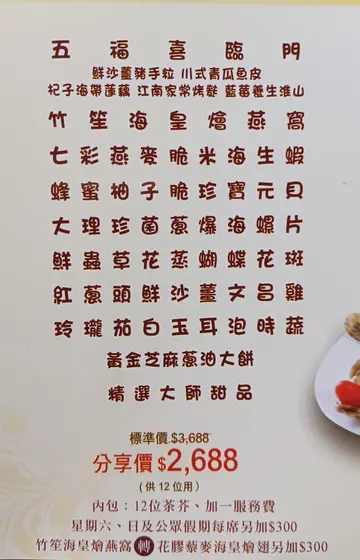 五福喜臨門
鮮沙薑豬手粒 川式青瓜魚皮
杞子海帶蓮藕 江南家常烤麩 藍莓養生淮山
竹笙海皇燴燕窩
七彩燕麥脆米海生蝦
蜂蜜柚子脆珍寶元貝
大理珍菌蔥爆海螺片
鮮蟲草花蒸蝴蝶花斑
紅蔥頭鮮沙薑文昌雞
玲瓏茄白玉耳泡時蔬
黃金芝麻蔥油大餅
精選大師甜品
標準價 $3,688
分享價 $2,688
(供12位用)
內包：12位茶芥、加一服務費
星期六、日及公眾假期每席另加$300
竹笙海皇燴燕窩 轉 花膠藜麥海皇燴翅另加$300